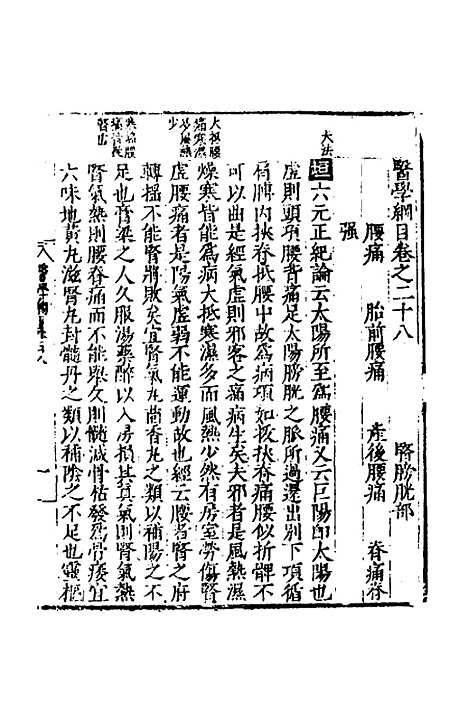 醫學綱目卷之二十八　腎膀胱部
腰痛　胎前腰痛　產後腰痛　脊痛脊
強
大法
垣六元正紀論云太陽所至為腰痛又云巨陽即太陽也
虛則頭項腰背痛足太陽膀胱之脈所過還出別下項循
肩膊內挾脊抵腰中故為病項如拔挾脊痛腰似折髀不
可以曲是經氣虛則邪客之痛病生矣夫邪者是風熱濕
燥寒皆能為病大抵寒濕多而風熱少然有房室勞傷腎
大抵腰
痛寒濕
多風熱
少
虛腰痛者是陽氣虛弱不能運動故也經云腰者腎之府
轉搖不能腎將敗矣宜腎氣丸茴香丸之類以補陽之不
足也膏粱之人久服湯藥醉以入房損其真氣則腎氣熱
腎氣熱則腰脊痛而不能舉久則髓減骨枯發為骨痿宜
六味地黃丸滋腎丸封髓丹之類以補陰之不足也靈樞